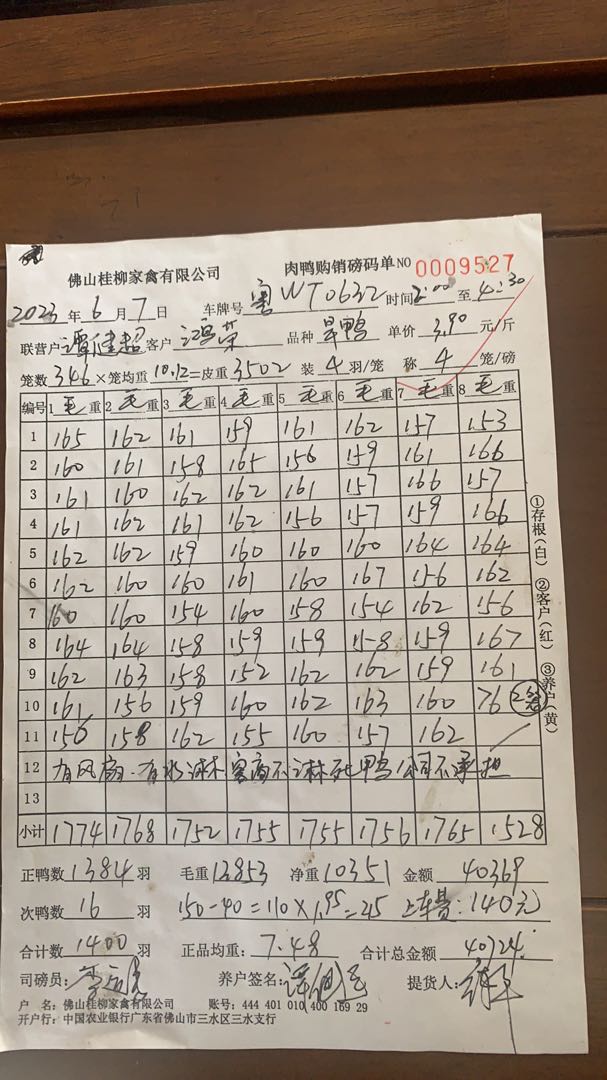 佛山桂柳家禽有限公司 肉鸭购销磅码单 NO 0009527
2023年6月7日 车牌号 粤WT0632 时间2:00至4:30
联营户 谭健超 客户 鸿荣 品种 旱鸭 单价 3.90 元/斤
笼数346×笼均重10.12=皮重3502 装4羽/笼 称4笼/磅
编号 1毛重 2毛重 3毛重 4毛重 5毛重 6毛重 7毛重 8毛重
1 165 162 161 159 161 162 157 153
2 160 161 158 165 156 159 161 166
3 161 160 162 162 161 157 166 157
4 161 162 161 162 156 157 159 166
5 162 162 159 160 160 160 164 164
6 162 160 160 161 160 167 156 162
7 160 160 154 160 158 154 162 156
8 164 164 158 159 159 158 159 167
9 162 163 158 152 162 162 159 161
10 161 156 159 160 162 163 160 76 2笼
11 156 158 162 155 160 157 162
12 有风扇·有水淋 客商不淋死鸭公司不承担
13
小计 1774 1768 1752 1755 1755 1756 1765 1528
正鸭数1384羽 毛重13853 净重10351 金额 40369
次鸭数 16 羽 150-40=110×1.95=215 上车费:140元
合计数1400羽 正品均重:7.48 合计总金额 40724
司磅员: 养户签名: 提货人:
户 名:佛山桂柳家禽有限公司 账号:444 401 010 400 169 29
开户行:中国农业银行广东省佛山市三水区三水支行
①存根(白) ②客户(红) ③养户(黄)